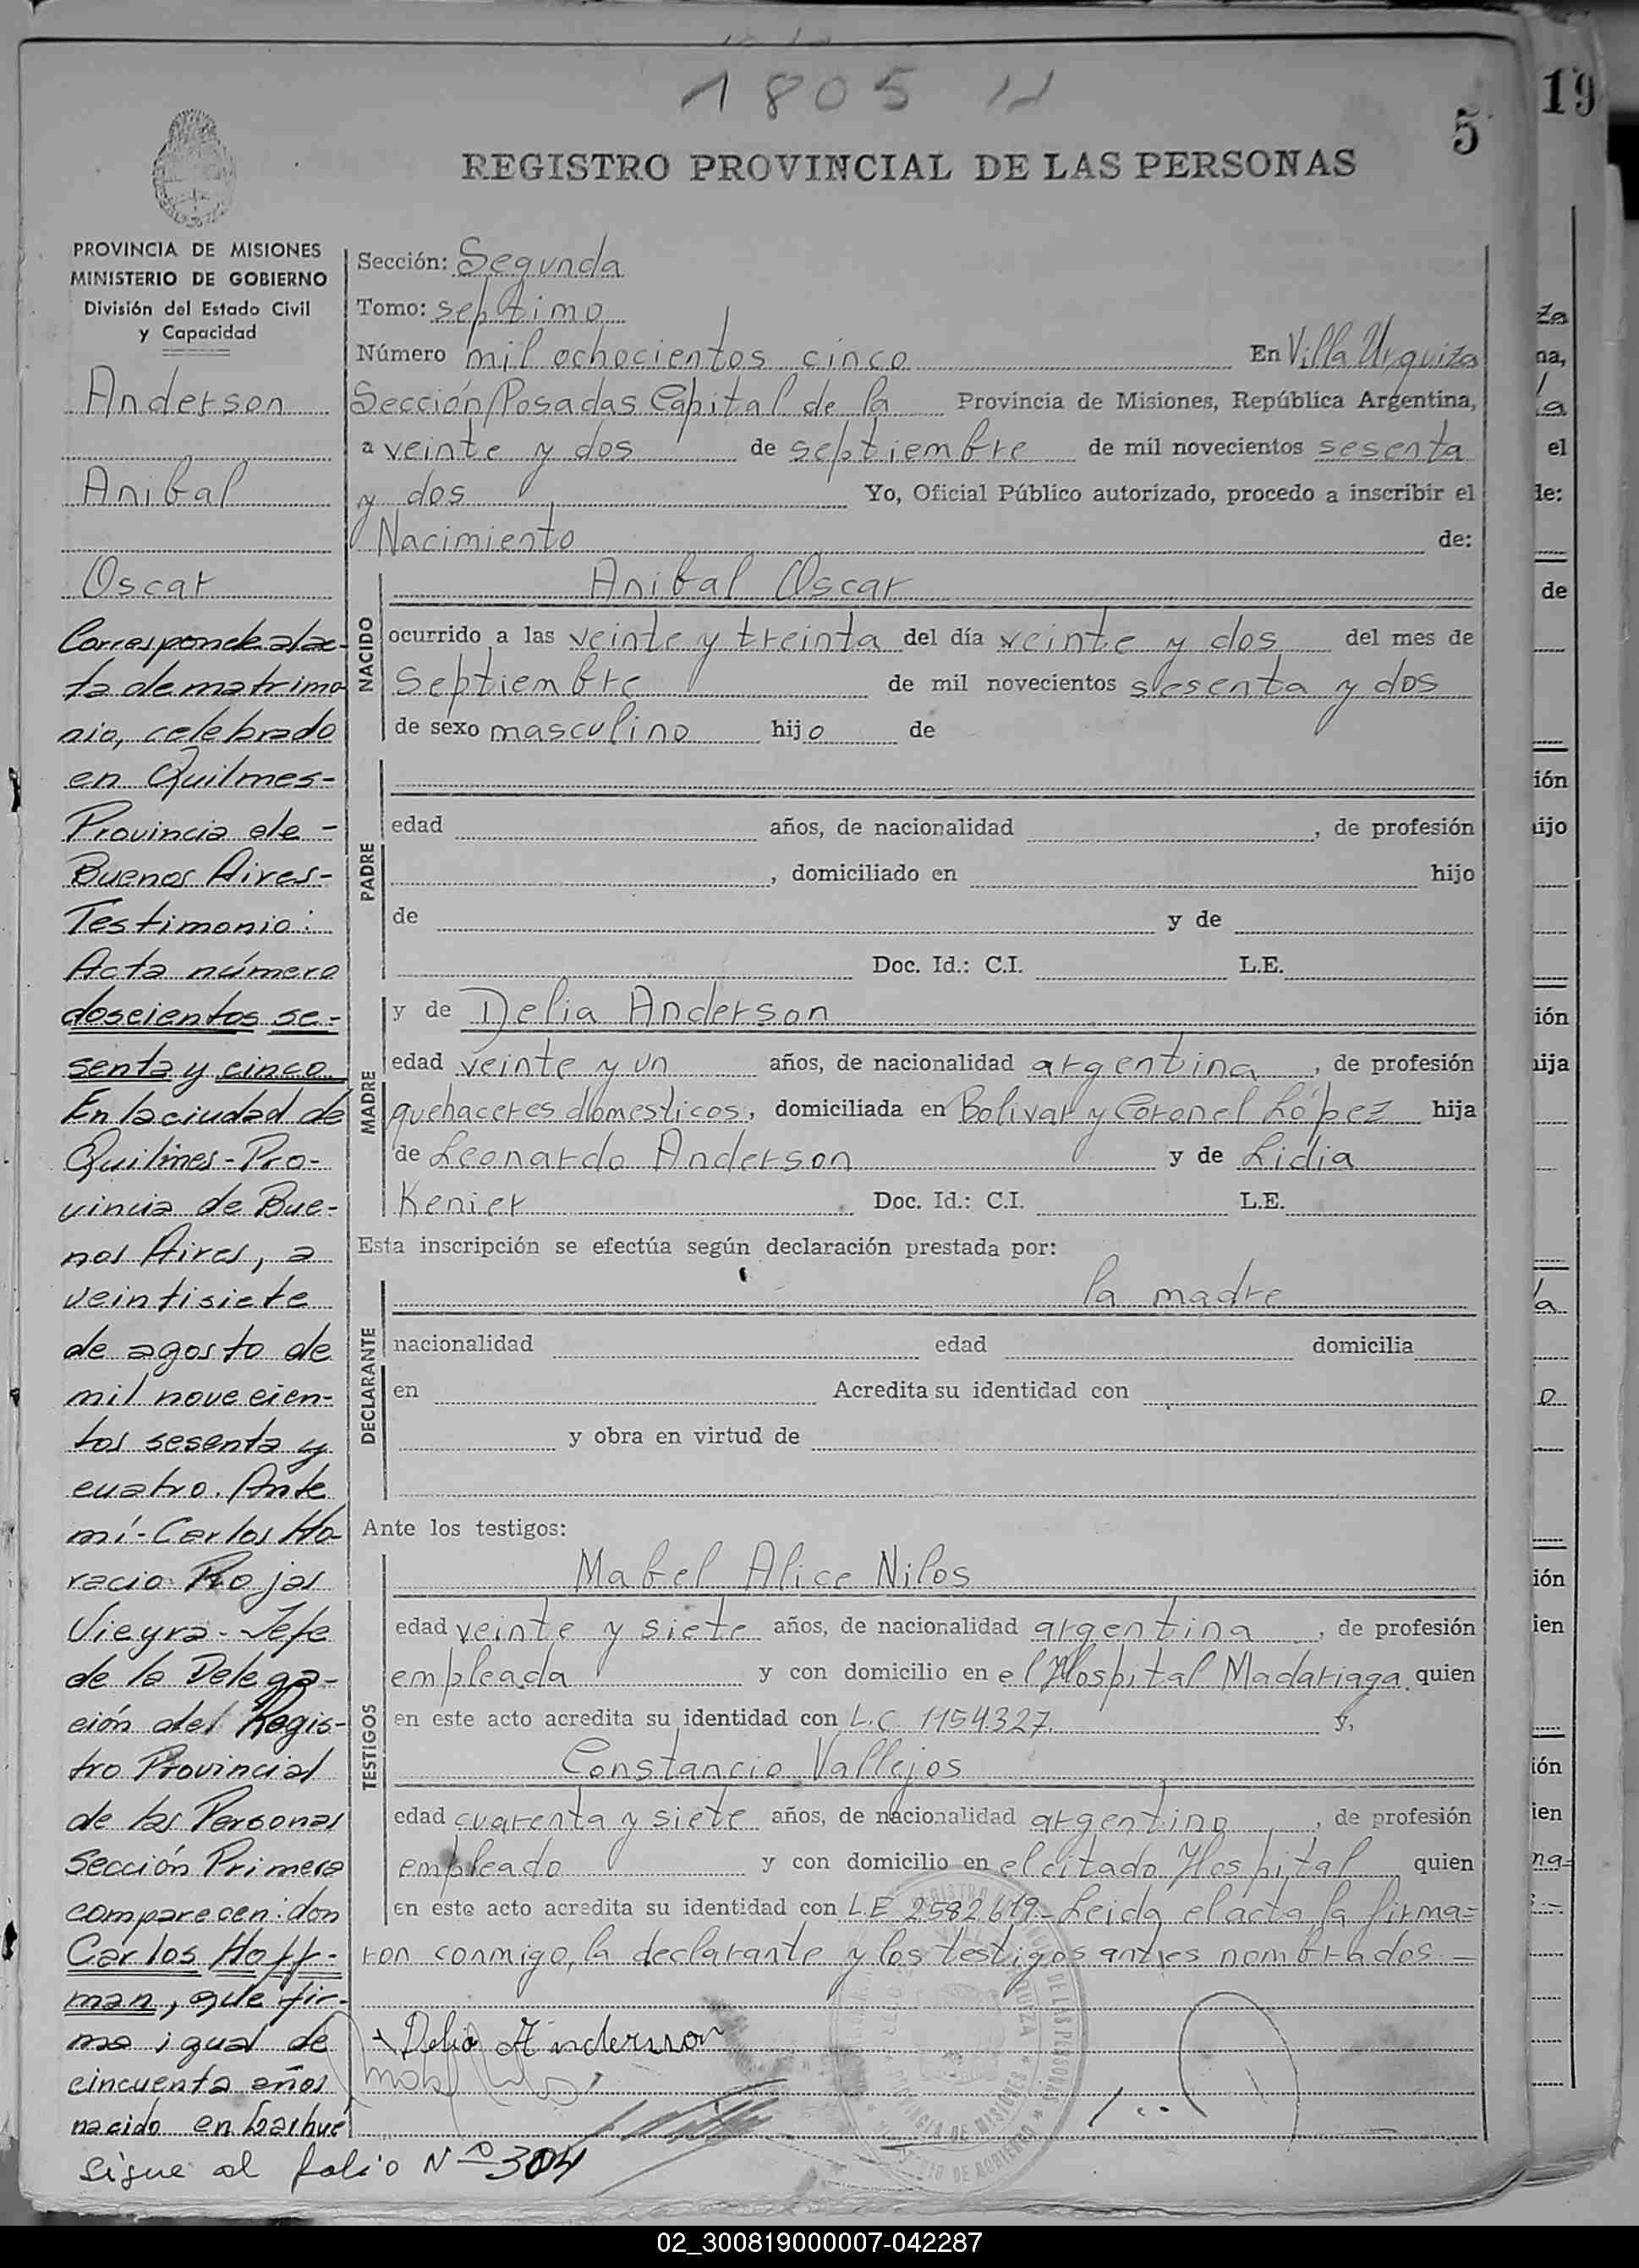 1805
5
19
REGISTRO PROVINCIAL DE LAS PERSONAS
PROVINCIA DE MISIONES
MINISTERIO DE GOBIERNO
División del Estado Civil
y Capacidad
Anderson
Anibal
Oscar
Corresponde al ac-
ta de matrimo
nio, celebrado
en Quilmes-
Provincia de -
Buenos Aires-
Testimonio:
Acta número
doscientos se-
senta y cinco
En la ciudad de
Quilmes - Pro-
vincia de Bue-
nos Aires, a
veintisiete
de agosto de
mil novecien-
tos sesenta y
cuatro. Ante
mí - Carlos Ho-
racio Rojas
Vieyra - Jefe
de la Delega-
ción del Regis-
tro Provincial
de las Personas
Sección Primera
comparecen: don
Carlos Hoff-
man, que fir-
ma igual de
cincuenta años
nacido en
Sigue al folio Nº 304
Sección: Segunda
Tomo: septimo
Número mil ochocientos cinco En Villa Urquiza
Sección Posadas Capital de la Provincia de Misiones, República Argentina,
a veinte y dos de septiembre de mil novecientos sesenta
y dos Yo, Oficial Público autorizado, procedo a inscribir el
Nacimiento de:
NACIDO
Anibal Oscar
ocurrido a las veinte y treinta del día veinte y dos del mes de
Septiembre de mil novecientos sesenta y dos
de sexo masculino hijo de
PADRE
edad años, de nacionalidad , de profesión
, domiciliado en hijo
de y de
Doc. Id.: C.I. L.E.
MADRE
y de Delia Anderson
edad veinte y un años, de nacionalidad argentina , de profesión
quehaceres domesticos, domiciliada en Bolivar y Coronel López hija
de Leonardo Anderson y de Lidia
Kenier Doc. Id.: C.I. L.E.
Esta inscripción se efectúa según declaración prestada por:
DECLARANTE
la madre
nacionalidad edad domicilia
en Acredita su identidad con
y obra en virtud de
Ante los testigos:
TESTIGOS
Mabel Alice Nilos
edad veinte y siete años, de nacionalidad argentina , de profesión
empleada y con domicilio en el Hospital Madariaga quien
en este acto acredita su identidad con L.C 1154327 y,
Constancio Vallejos
edad cuarenta y siete años, de nacionalidad argentino , de profesión
empleado y con domicilio en el citado Hospital quien
en este acto acredita su identidad con L.E 2582619 - Leida el acta, la firma=
ron conmigo, la declarante y los testigos antes nombrados -
Delia Anderson
PROVINCIA DE MISIONES
02_300819000007-042287